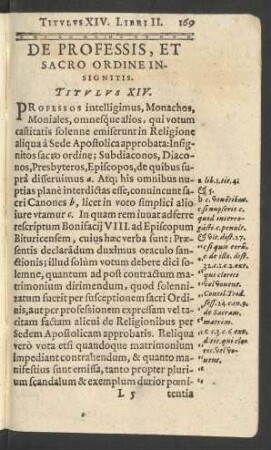 TITVLVS XIV. LIBRI II. 169
DE PROFESSIS, ET
SACRO ORDINE IN-
SIGNITIS.
TITVLVS XIV.
PROFESSOS intelligimus, Monachos,
Moniales, omnesque alios, qui votum
castitatis solenne emiserunt in Religione
aliqua à Sede Apostolica approbata: Insi-
gnitos sacro ordine; Subdiaconos, Diaco-
nos, Presbyteros, Episcopos, de quibus su-
prà disseruimus a. Atq; his omnibus nu-
ptias planè interdictas esse, conuincunt sa-
cri Canones b, licet in voto simplici alio
iure vtamur c. In quam rem iuuat adferre
rescriptum Bonifacij VIII. ad Episcopum
Bituricensem, cuius hæc verba sunt: Præ-
sentis declarādum duximus oraculo san-
ctionis; illud solùm votum debere dici so-
lenne, quantum ad post contractum ma-
trimonium dirimendum, quod solenni-
zatum fuerit per susceptionem sacri Ordi-
nis, aut per professionem expressam vel ta-
citam factam alicui de Religionibus per
Sedem Apostolicam approbatis. Reliqua
verò vota etsi quandoque matrimonium
impediant contrahendum, & quanto ma-
nifestius sunt emissa, tanto propter pluri-
um scandalum & exemplum durior pœni-
L 5 tentia
a lib. 1. tit. 4.
& 5.
matrim.